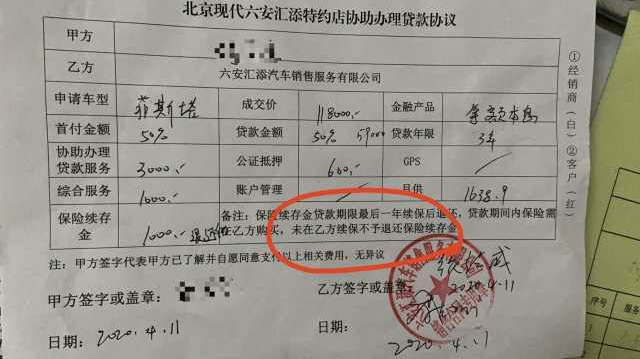 北京现代六安汇添特约店协助办理贷款协议
甲方
乙方 六安汇添汽车销售服务有限公司
申请车型 菲斯塔 成交价 118000.- 金融产品
首付金额 50% 贷款金额 50% 59000 贷款年限 3年
协助办理贷款服务 3000.- 公证抵押 600.- GPS /
综合服务 1000.- 账户管理 / 月供 1638.9
保险续存金 1000.- 备注：保险续存金贷款期限最后一年续保后退还，贷款期间内保险需
在乙方购买，未在乙方续保不予退还保险续存金
注：甲方签字代表甲方已了解并自愿同意支付以上相关费用，无异议
甲方签字或盖章：
乙方签字或盖章：
2020.4.11
日期：2020.4.11
日期：2020.4.11
①经销商（白）②客户（红）
序号 服务
1